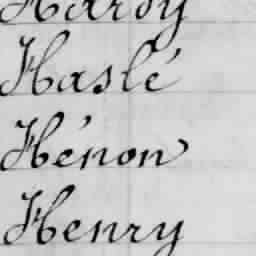 Hardy
Haslé
Hénon
Henry